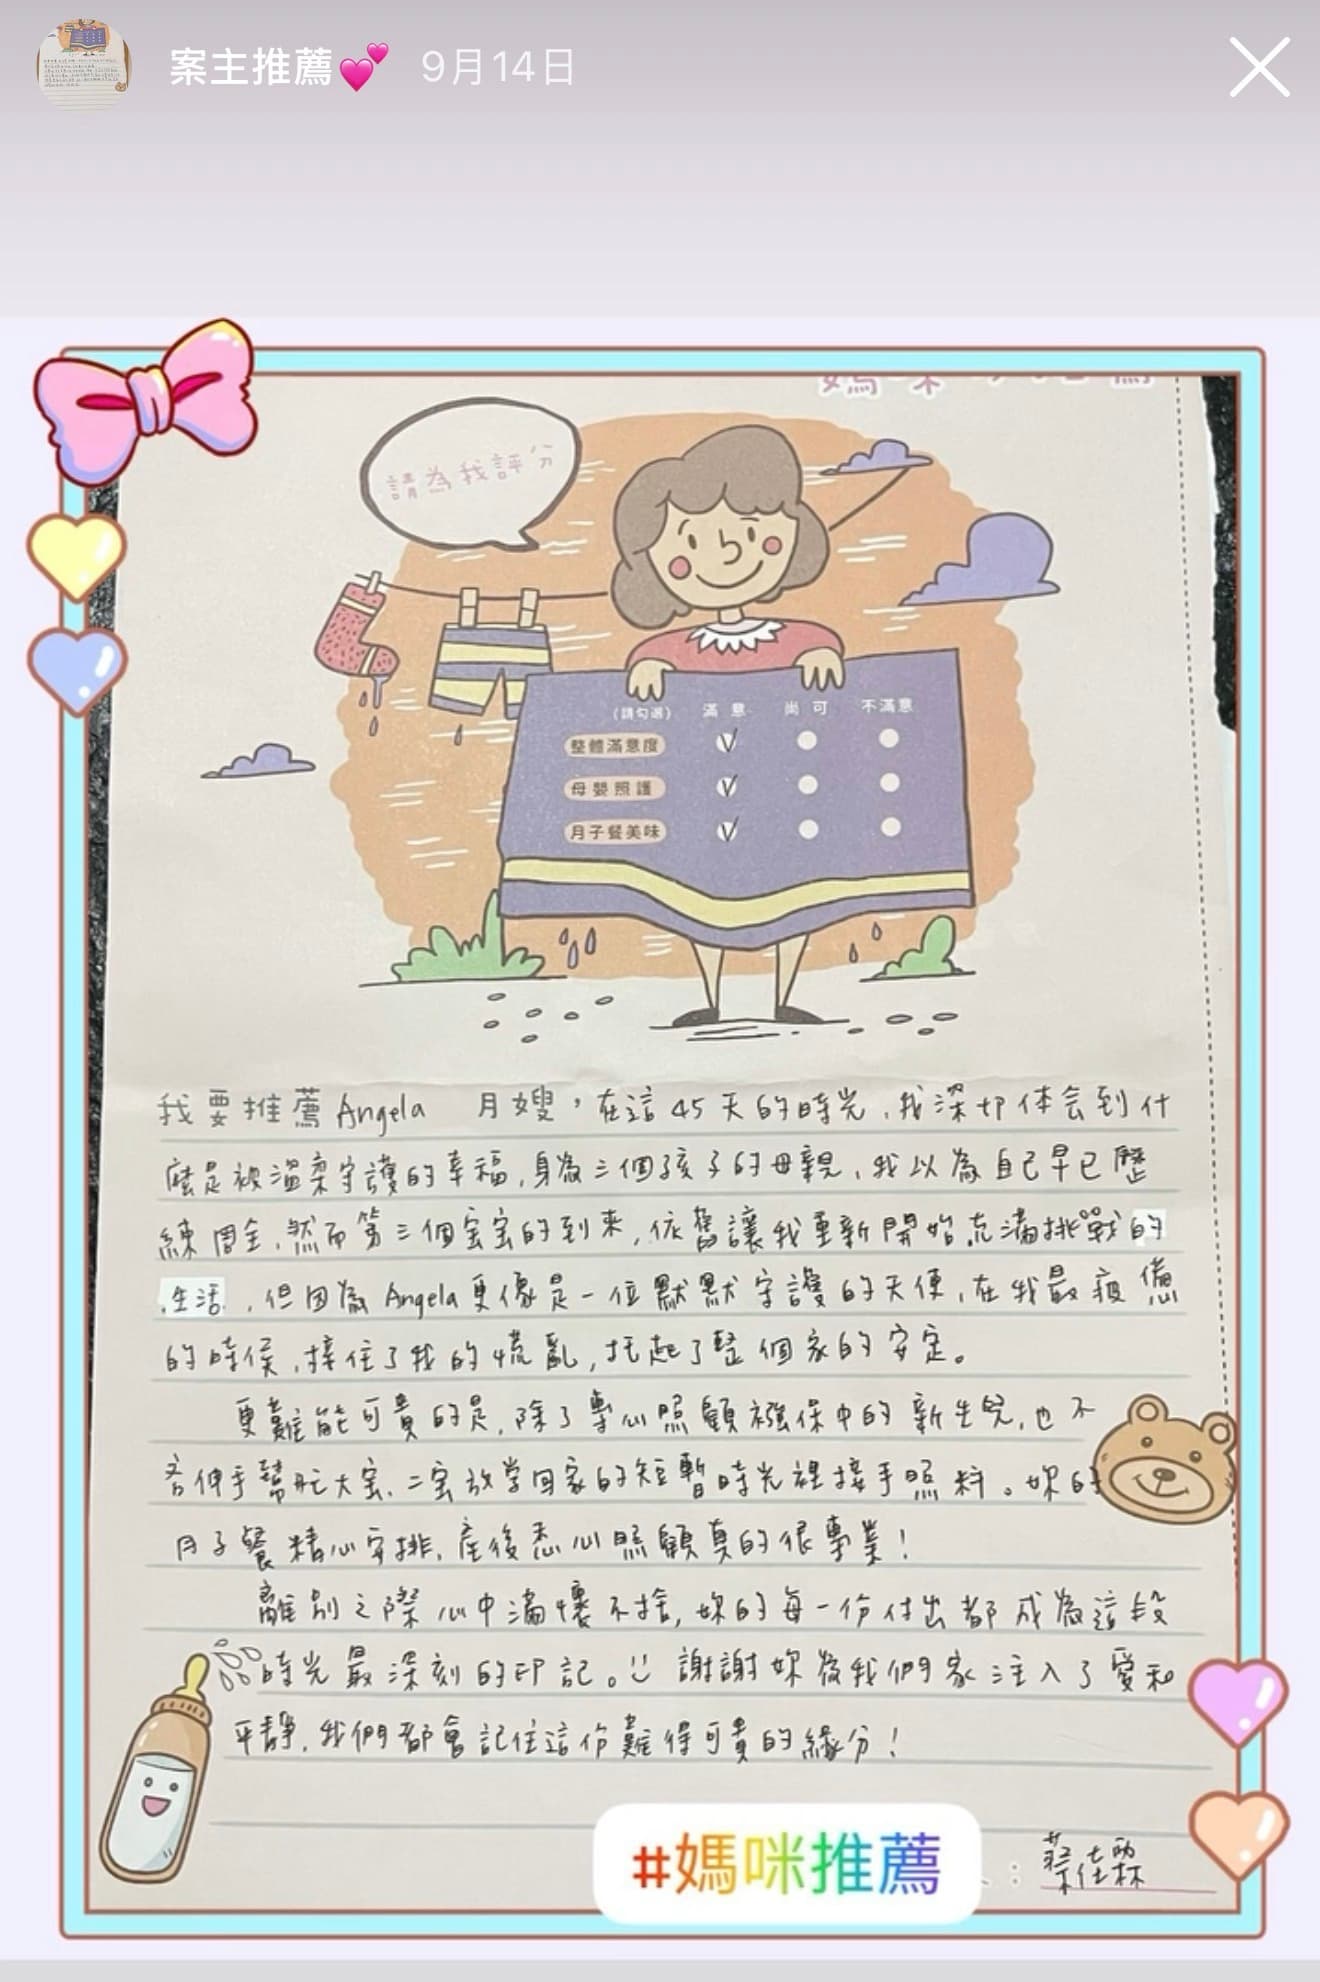 案主推薦💕 9月14日
請為我評分
(請勾選) 滿意 尚可 不滿意
整體滿意度 V
母嬰照護 V
月子餐美味 V
我要推薦Angela 月嫂，在這45天的時光，我深切体会到什
麼是被溫柔守護的幸福，身為三個孩子的母親，我以為自己早已歷
練周全，然而第三個宝宝的到來，依舊讓我重新開始充滿挑戰的
生活，但因為Angela更像是一位默默守護的天使，在我最疲憊
的時候，接住了我的慌亂，托起了整個家的安定。
更難能可貴的是，除了專心照顧襁褓中的新生兒，也不
吝伸手幫忙大宝、二宝放学回家的短暫時光裡接手照料。妳的
月子餐精心安排，產後悉心照顧真的很專業！
離別之際心中滿懷不捨，妳的每一份付出都成為這段
時光最深刻的印記。謝謝妳為我們家注入了愛和
平靜，我們都會記住這份難得可貴的緣分！
#媽咪推薦